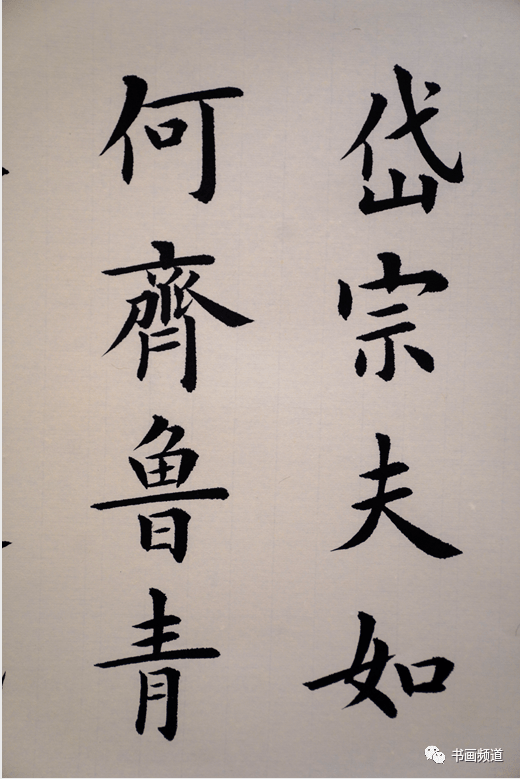 岱宗夫如
何齊魯青
书画频道